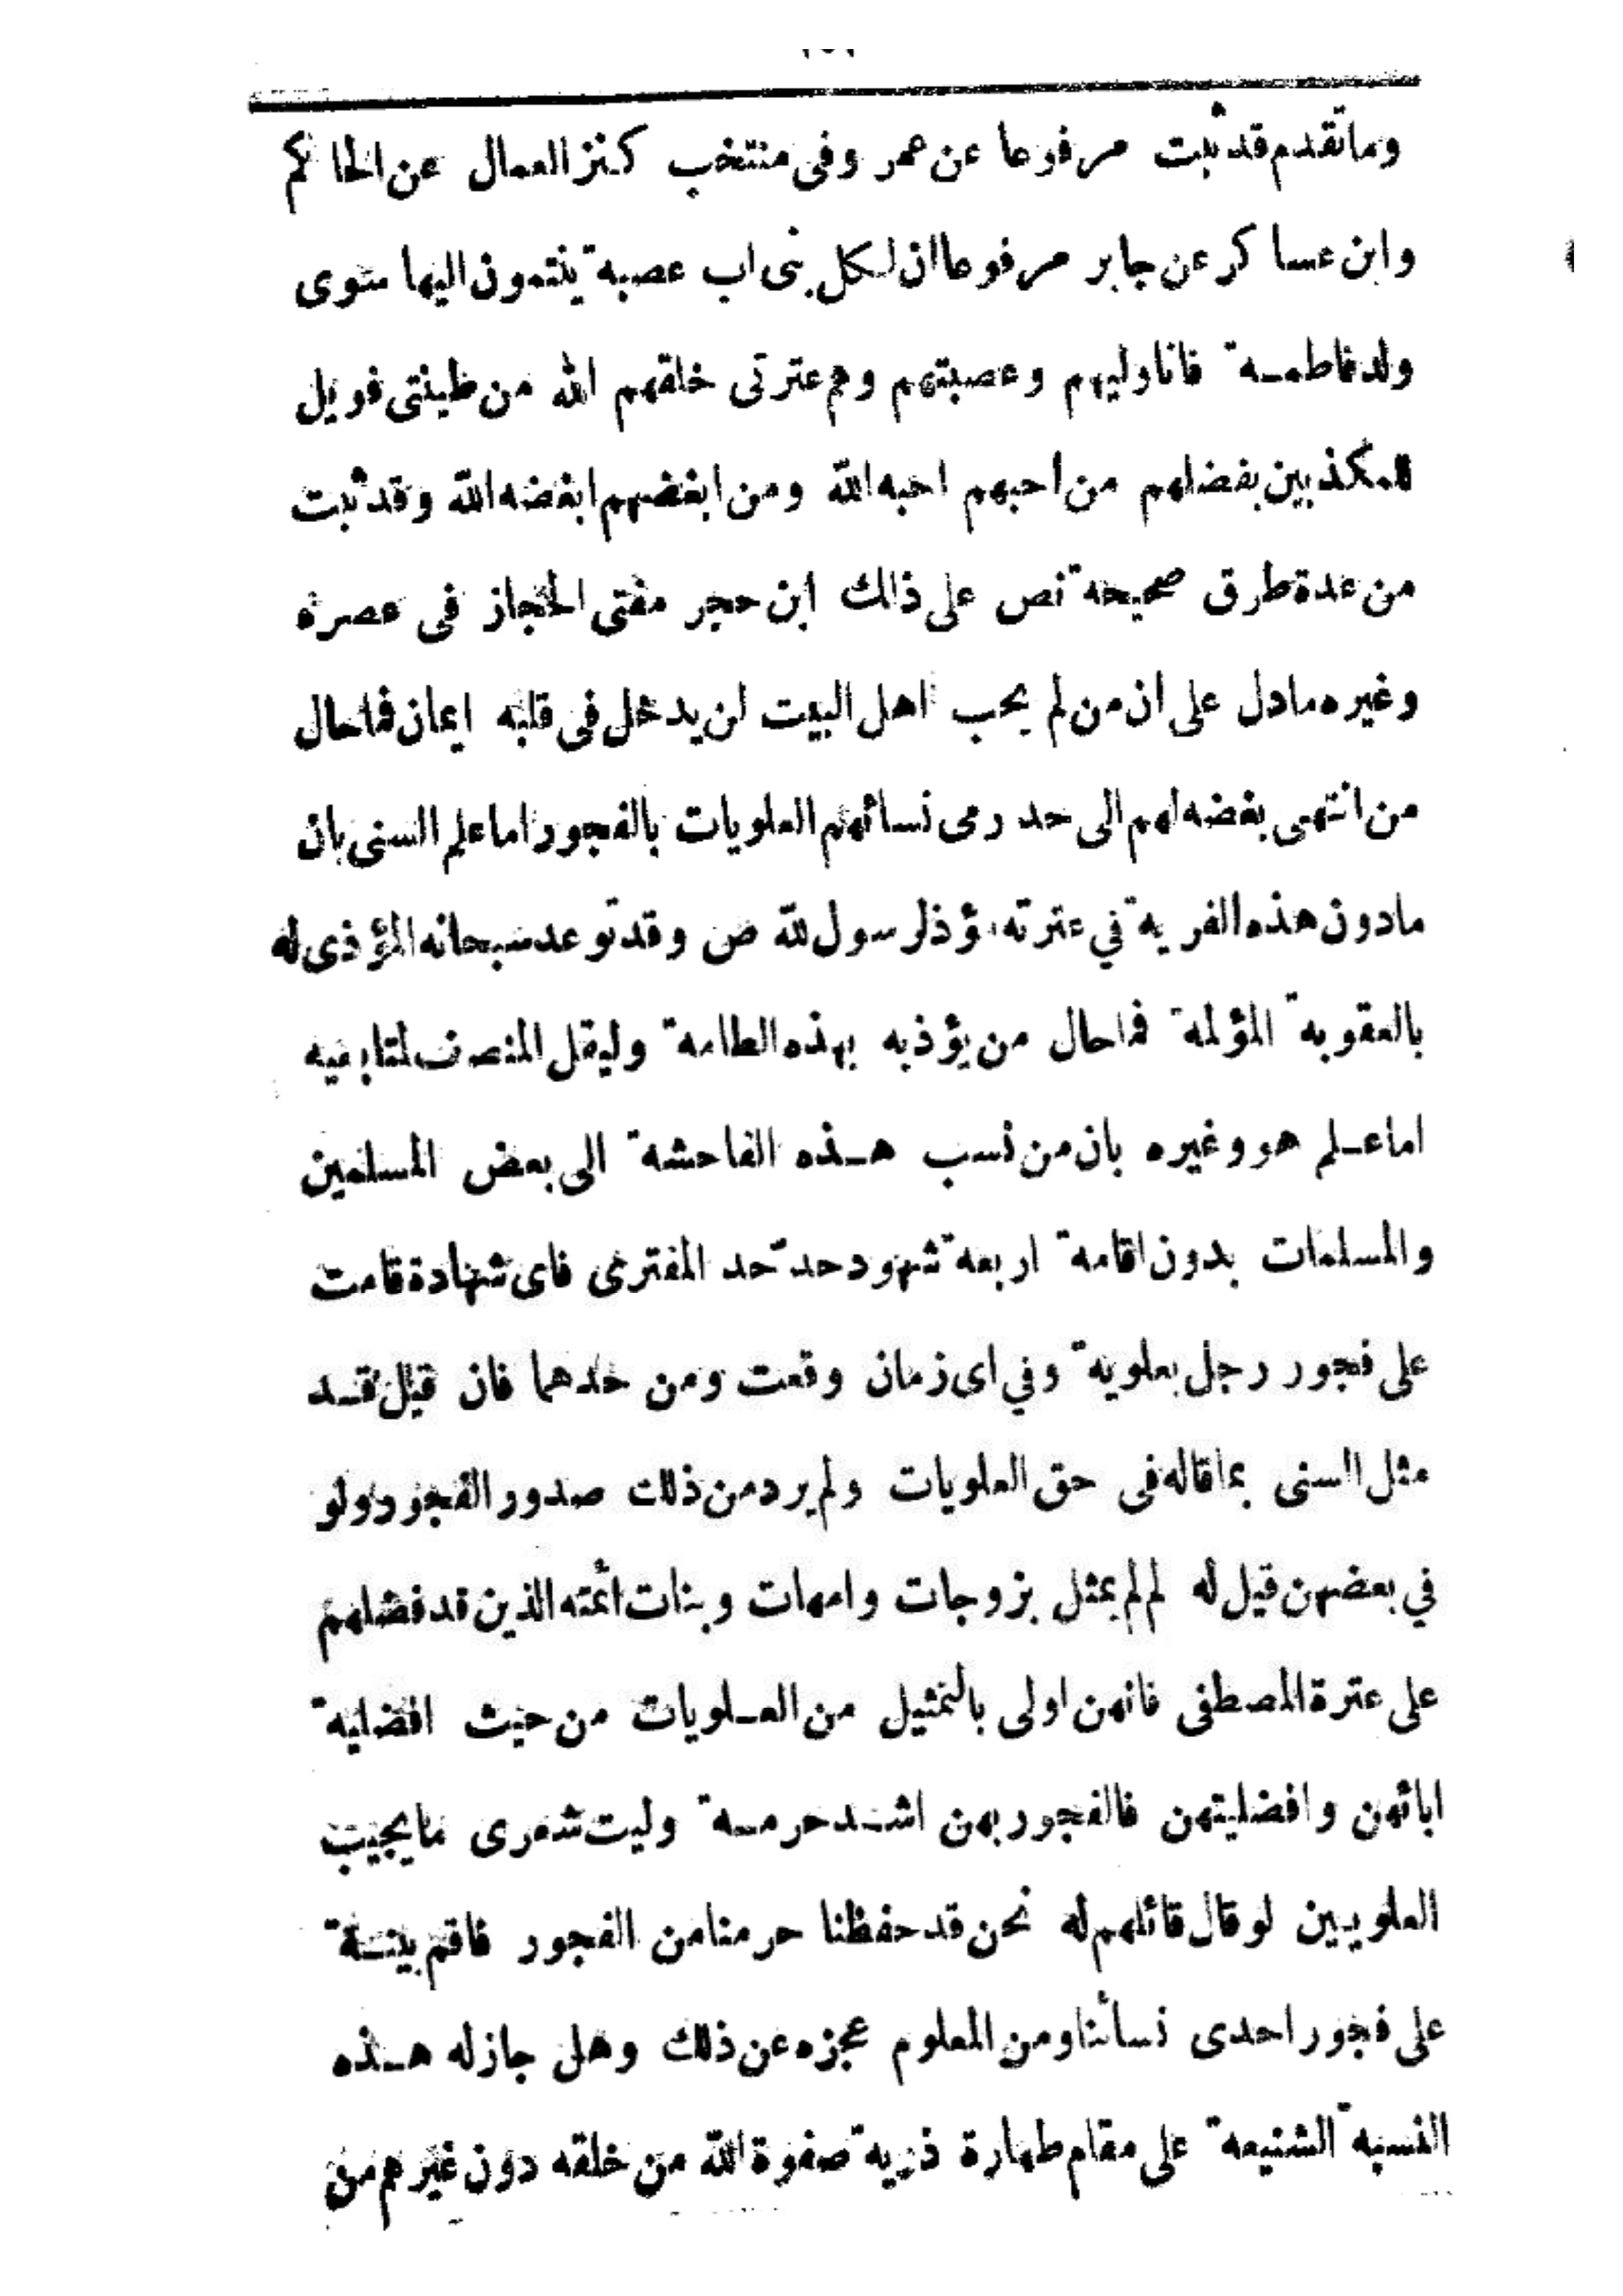 وما تقدم قد ثبت مرفوعا عن عمر وفى منتخب كنز العمال عن الحاكم
وابن عساكر عن جابر مرفوعا ان لكل بنى اب عصبة ينتمون اليها سوى
ولد فاطمة فانا وليهم وعصبتهم وهم عترتى خلقهم الله من طينتى فويل
للمكذبين بفضلهم من احبهم احبه الله ومن ابغضهم ابغضه الله وقد ثبت
من عدة طرق صحيحة نص على ذالك ابن حجر مفتى الحجاز فى عصره
وغيره مادل على ان من لم يحب اهل البيت لن يدخل فى قلبه ايمان فما حال
من انتهى بغضه لهم الى حد رمى نسائهم العلويات بالفجور اما علم السنى بان
مادون هذه الفرية في عترته مؤذ لرسول لله ص وقد توعد سبحانه المؤذى له
بالعقوبة المؤلمة فما حال من يؤذيه بهذه الطامة وليقل المنصف لمتابعيه
اما علم هو وغيره بان من نسب هذه الفاحشة الى بعض المسلمين
والمسلمات بدون اقامة اربعة شهود حد حد المفترى فاى شهادة قامت
على فجور رجل بعلوية وفي اى زمان وقعت ومن حدهما فان قيل قد
مثل السنى بما قاله فى حق العلويات ولم يرد من ذلك صدور الفجور ولو
في بعضهن قيل له لم لم يمثل بزوجات وامهات وبنات ائمته الذين قد فضلهم
على عترة المصطفى فانهن اولى بالتمثيل من العلويات من حيث افضلية
ابائهن وافضليتهن فالفجور بهن اشد حرمة وليت شعرى ما يجيب
العلويين لو قال قائلهم له نحن قد حفظنا حرمنا من الفجور فاقم بينة
على فجور احدى نسائنا ومن المعلوم عجزه عن ذلك وهل جاز له هذه
النسبة الشنيعة على مقام طهارة ذرية صفوة الله من خلقه دون غيرهم من